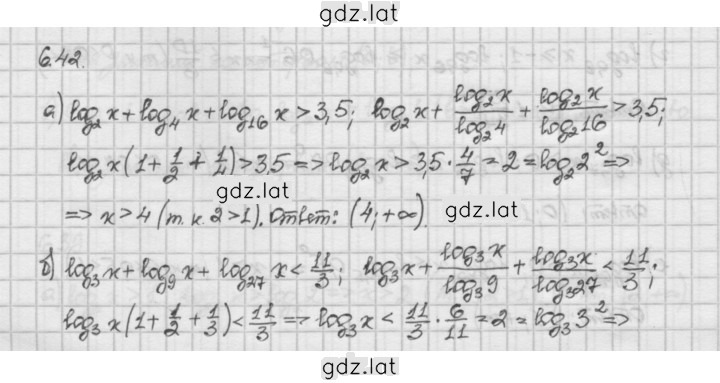 gdz.lat
6.42.
а) log₂x + log₄x + log₁₆x > 3,5; log₂x + log₂x/log₂4 + log₂x/log₂16 > 3,5;
log₂x(1 + 1/2 + 1/4) > 3,5 => log₂x > 3,5 · 4/7 = 2 = log₂2² =>
gdz.lat
=> x > 4 (т.к. 2 > 1). Ответ: (4; +∞).
gdz.lat
б) log₃x + log₉x + log₂₇x < 11/3; log₃x + log₃x/log₃9 + log₃x/log₃27 < 11/3;
log₃x(1 + 1/2 + 1/3) < 11/3 => log₃x < 11/3 · 6/11 = 2 = log₃3² =>
gdz.lat